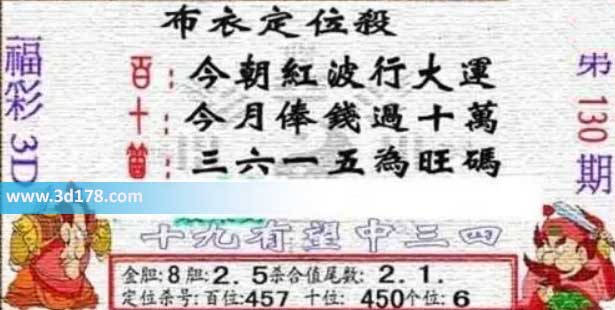 布衣定位殺
福彩 3D
第 130 期
百：今朝紅波行大運
十：今月俸錢過十萬
三六一五為旺碼
www.3d178.com
十九有望中三四
金胆:8胆:2.5杀合值尾数:2.1.
定位杀号:百位:457 十位:450个位:6